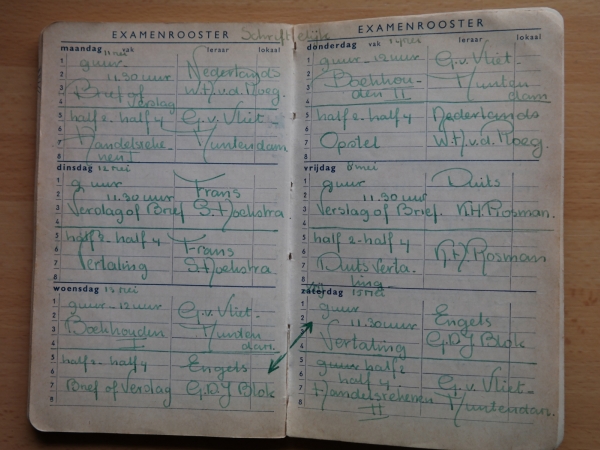 EXAMENROOSTER Schriftelijk
maandag 11 mei vak leraar lokaal
1 9 uur Nederlands
2 11.30 uur
3 Brief of W.H.v.d. Ploeg.
4 verslag
5 half 2 - half 4 G.v. Vliet-
6
7 Handelsreke- Muntendam
8 nen I
dinsdag 12 mei
1 9 uur Frans
2 11.30 uur
3 Verslag of Brief S. Hoekstra
4
5 half 2 - half 4 Frans
6
7 Vertaling S. Hoekstra
8
woensdag 13 mei
1 9 uur - 12 uur G.v. Vliet-
2
3 Boekhouden Munten
4 I dam.
5 half 2 - half 4 Engels
6
7 Brief of Verslag G.D.J Blok
8
EXAMENROOSTER
donderdag vak 14 mei leraar lokaal
1 9 uur - 12 uur G.v. Vliet-
2
3 Boekhou- Munten
4 den II dam
5 half 2 - half 4 Nederlands
6
7 Opstel W.H.v.d. Ploeg.
8
vrijdag mei
1 9 uur Duits
2 11.30 uur
3 Verslag of Brief. Rosman.
4
5 half 2 - half 4
6 Rosman
7 Duits Verta-
8 ling
zaterdag 15 mei
1 9 uur Engels
2 11.30 uur
3 Vertaling G.D.J Blok
4
5 9 uur half 2
6 half 4 G.v. Vliet-
7 Handelsrekenen
8 II Muntendam.